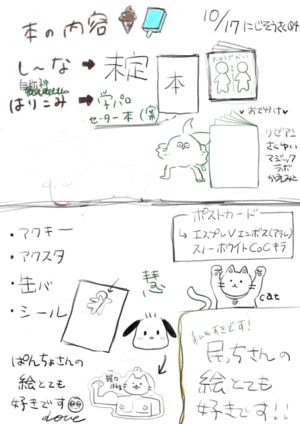 本の内容
10/17 にじそうさく04
し〜な → 未定
本
おでかけ
はりこみ → 学パロ
セーター本(案)
♥おでかけ♥
リゼアン
さくゆい
マジック
ラボ
かえみと
ポストカード
↳ エスプレVエンボス(アラレ)
スノーホワイトCoCキラ
・アクキー
・アクスタ
・缶バ
・シール
慧
cat
ぱんちょさんの
絵とても
好きです
love
握力
私もすきです!
民っちさんの
絵とても
好きです!!